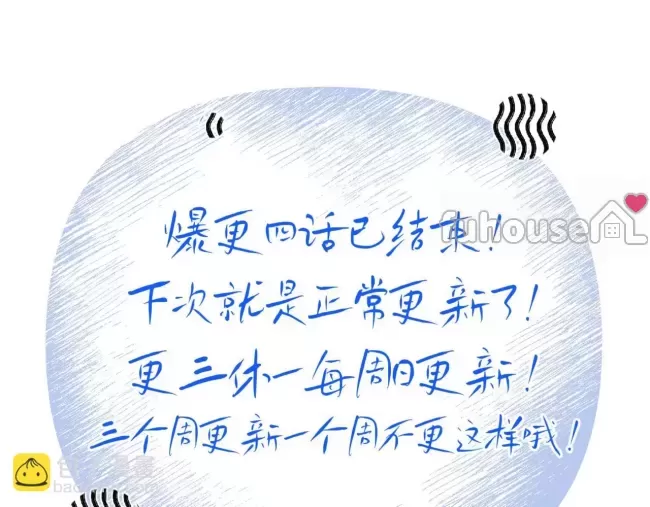 爆更四话已结束!
fuhouse
下次就是正常更新了!
更三休一每周日更新!
三个周更新一个周不更这样哦!